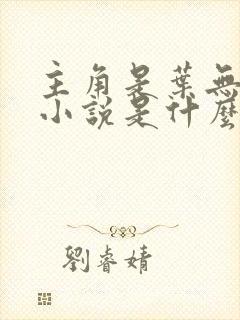 主角是葉無
小說是什麼
劉睿婧